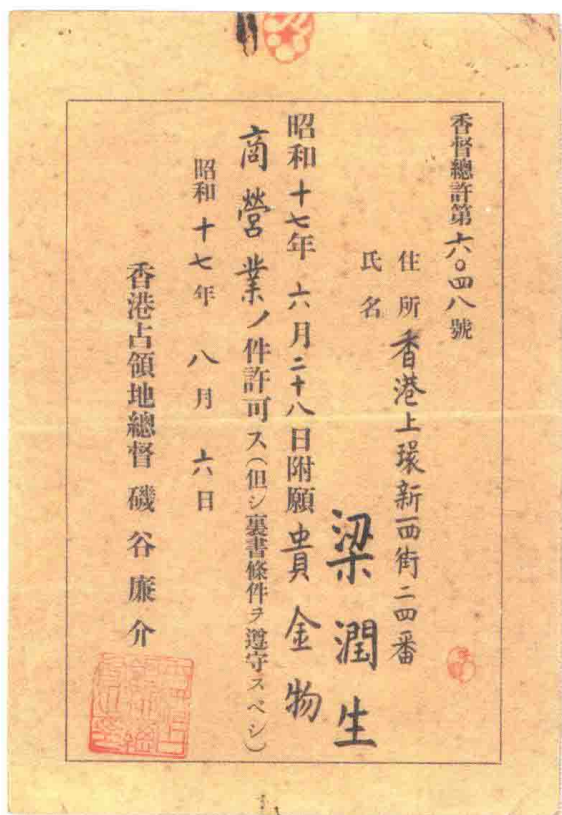 香督總許第六〇四八號
住所香港上環新西街二四番
氏名 梁潤生
昭和十七年六月二十八日附願貴金物
商營業ノ件許可ス(但シ裏書條件ヲ遵守スベシ)
昭和十七年八月六日
香港占領地總督 磯谷廉介